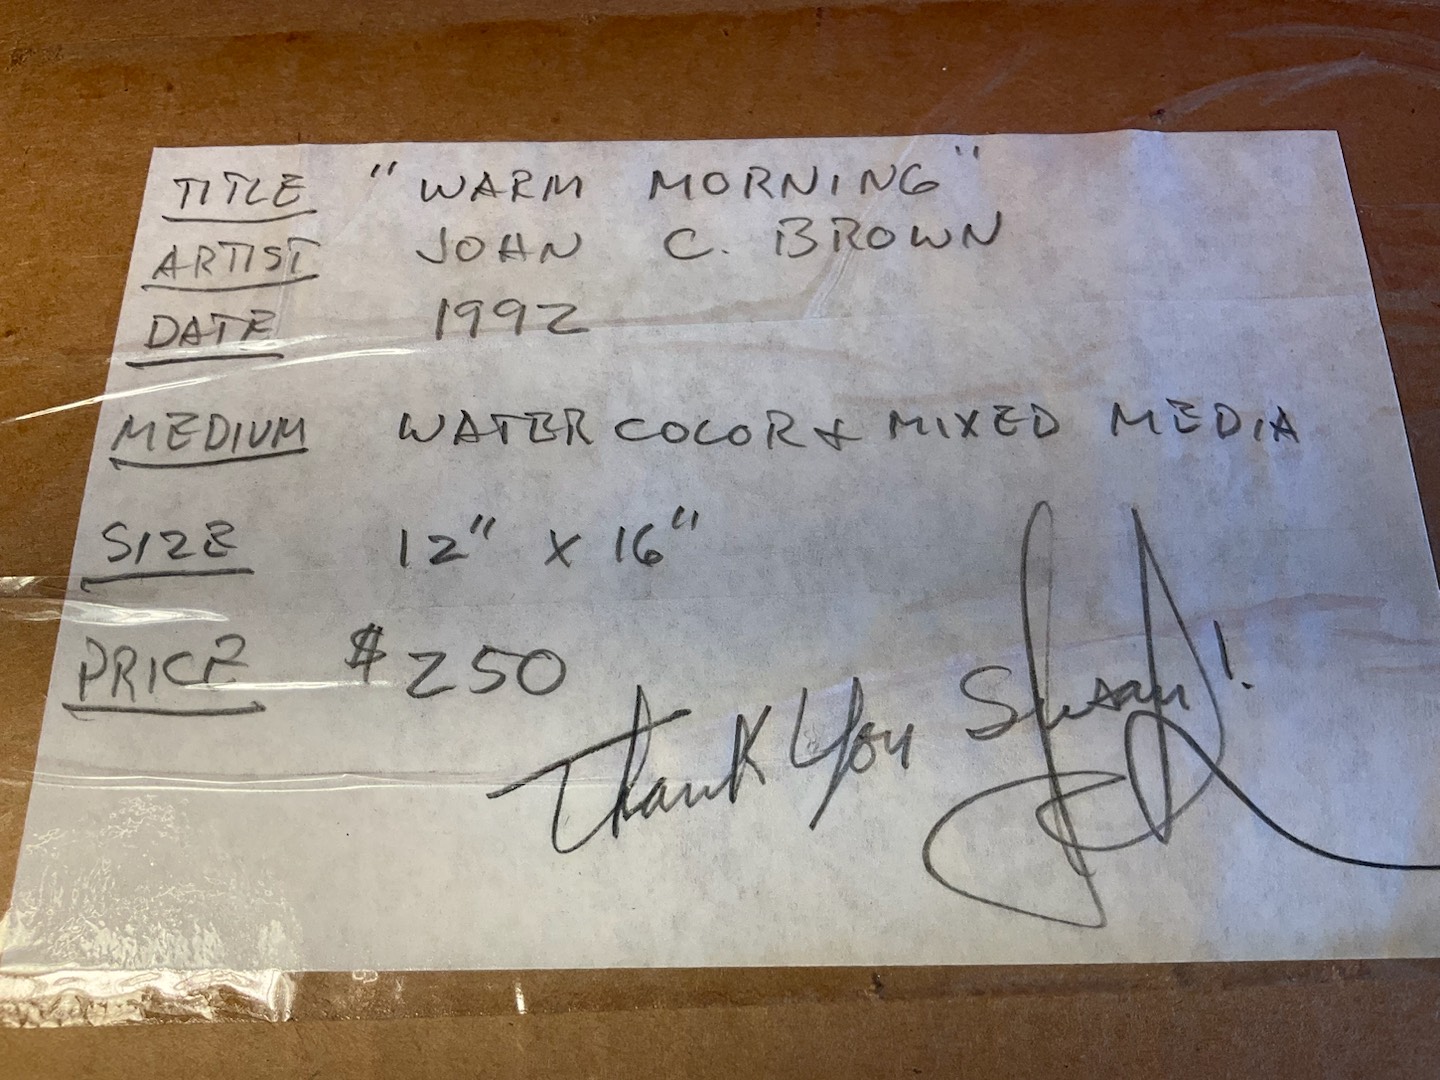 TITLE "WARM MORNING"
ARTIST JOHN C. BROWN
DATE 1992
MEDIUM WATERCOLOR & MIXED MEDIA
SIZE 12" X 16"
PRICE $250
Thank You Susan!